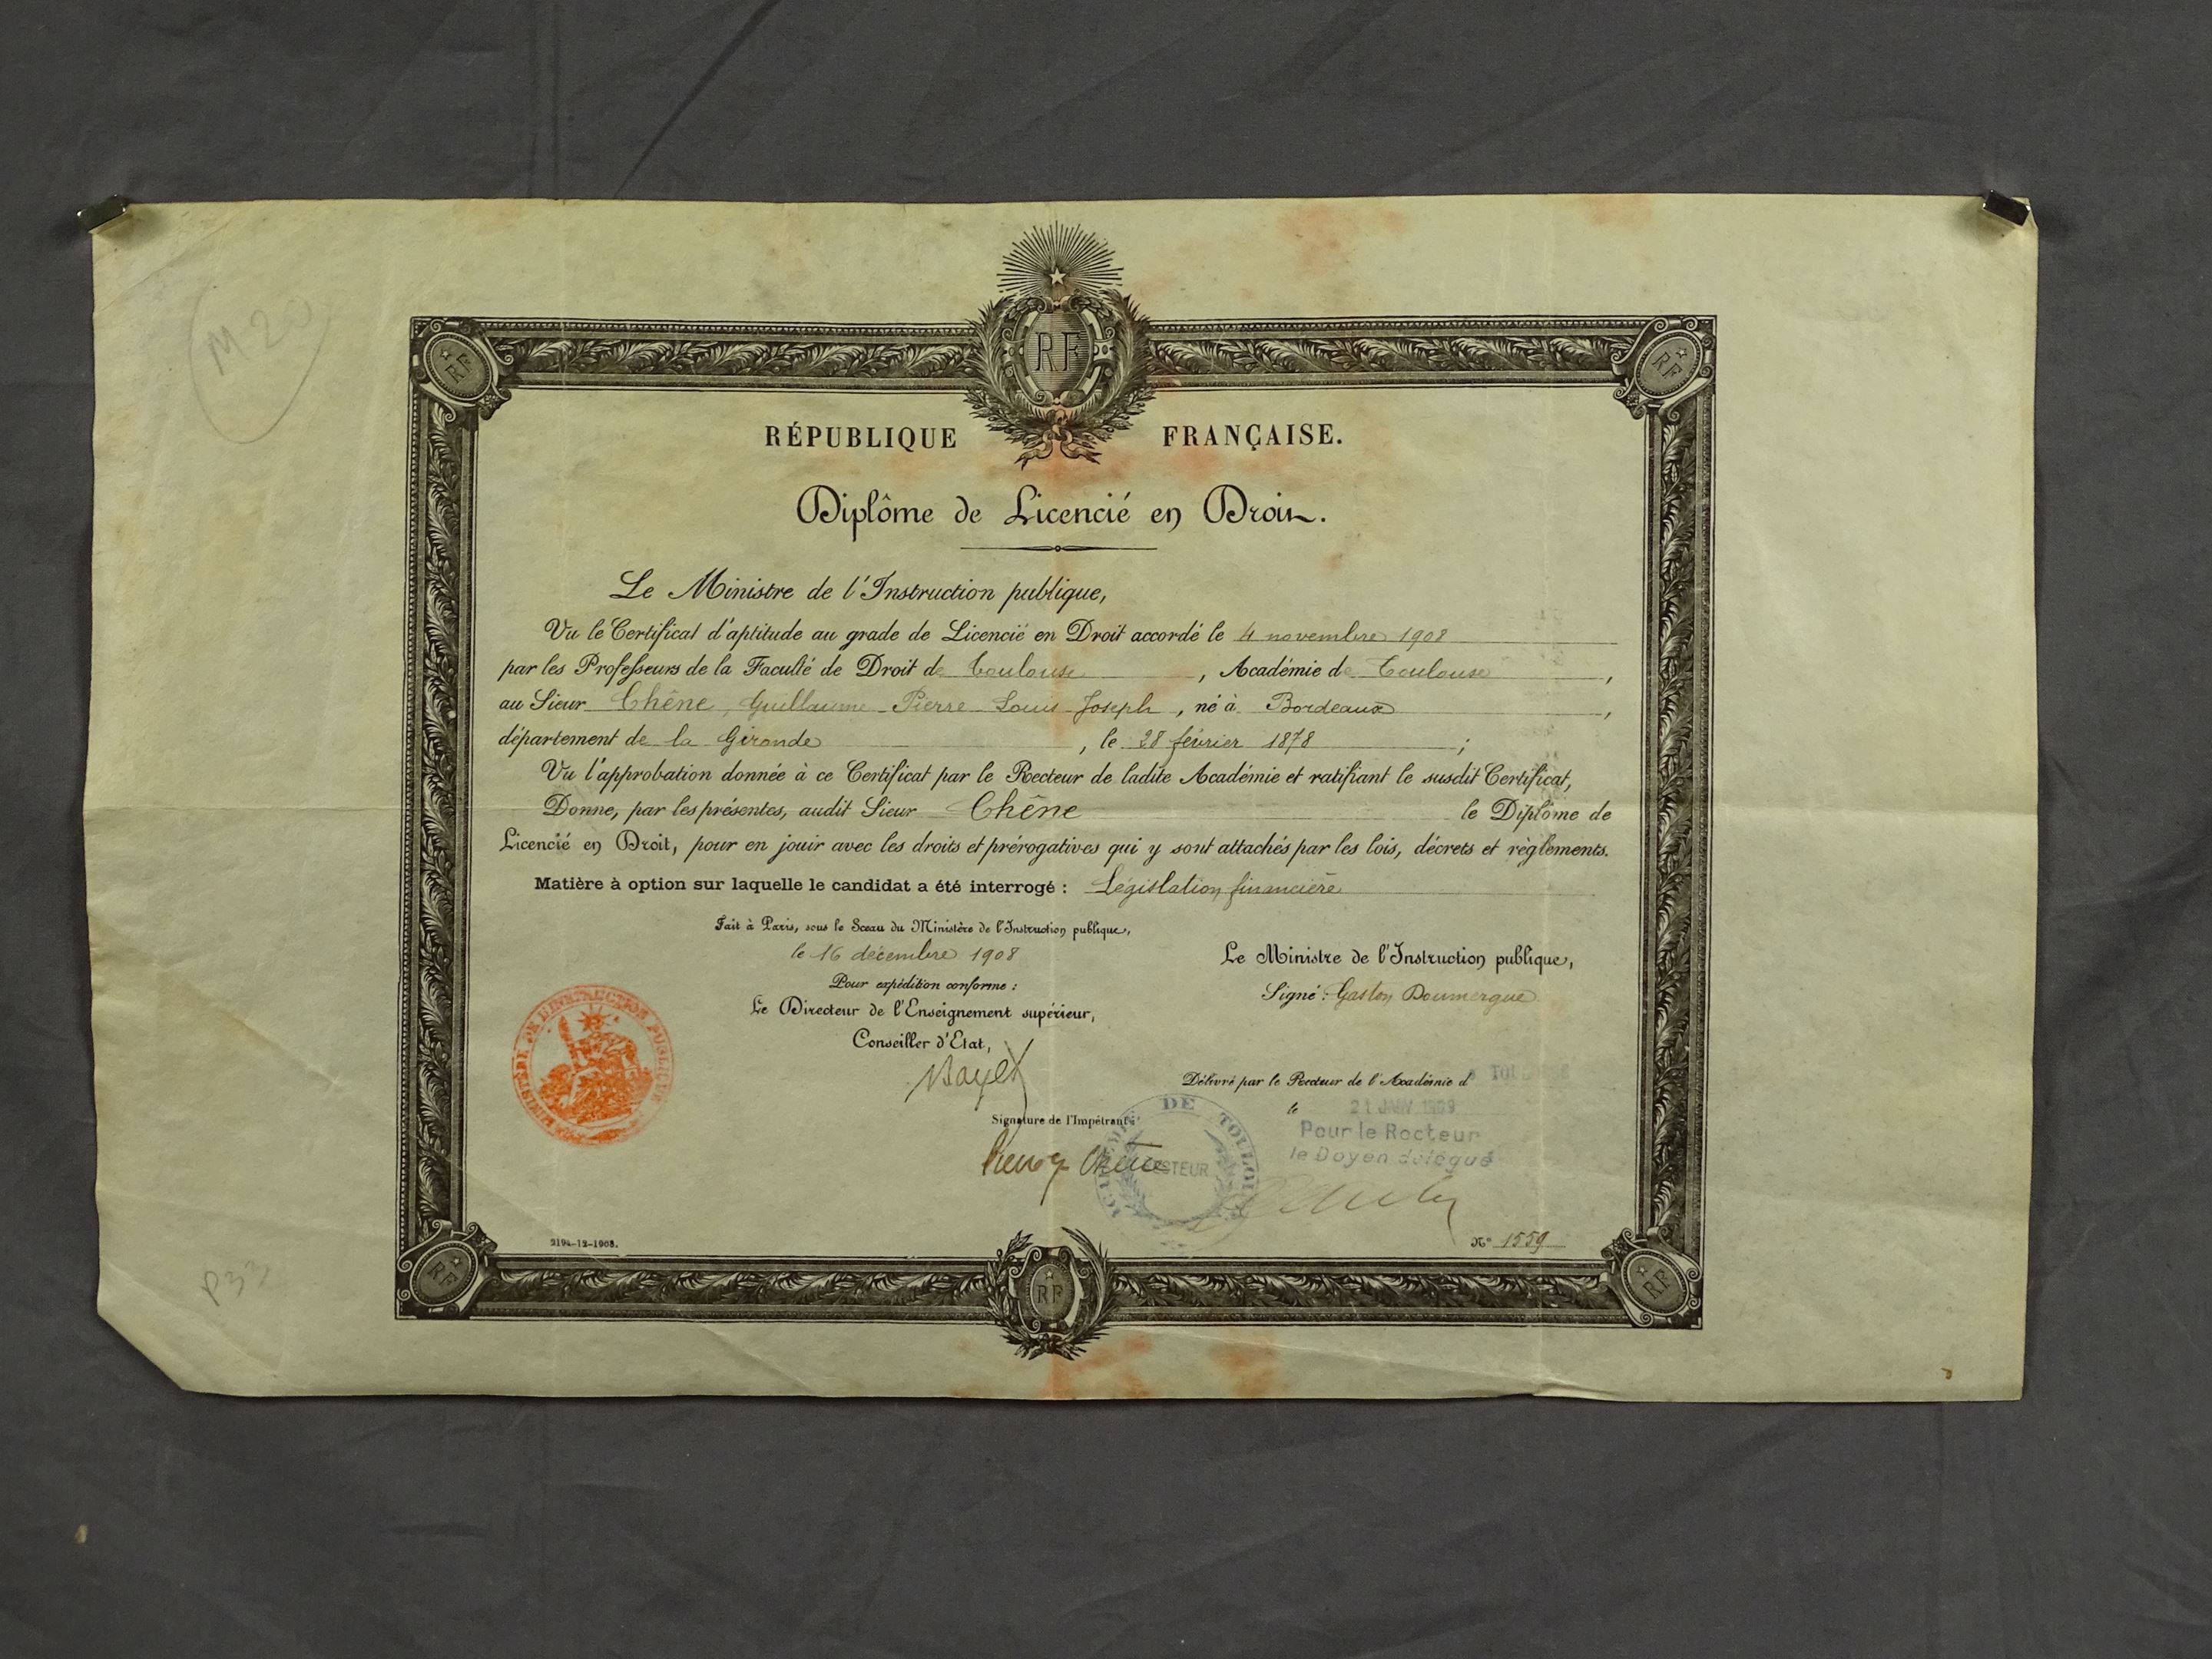 M 20
RF
RF
RF
RÉPUBLIQUE FRANÇAISE.
Diplôme de Licencié en Droit.
Le Ministre de l'Instruction publique,
Vu le Certificat d'aptitude au grade de Licencié en Droit accordé le 4 novembre 1908
par les Professeurs de la Faculté de Droit de Toulouse, Académie de Toulouse,
au Sieur Chêne, Guillaume Pierre Louis Joseph, né à Bordeaux,
département de la Gironde, le 28 février 1878;
Vu l'approbation donnée à ce Certificat par le Recteur de ladite Académie et ratifiant le susdit Certificat,
Donne, par les présentes, audit Sieur Chêne le Diplôme de
Licencié en Droit, pour en jouir avec les droits et prérogatives qui y sont attachés par les lois, décrets et règlements.
Matière à option sur laquelle le candidat a été interrogé : Législation financière
Fait à Paris, sous le Sceau du Ministère de l'Instruction publique,
le 16 décembre 1908
Pour expédition conforme :
Le Directeur de l'Enseignement supérieur,
Conseiller d'Etat,
Bayet
Le Ministre de l'Instruction publique,
Signé : Gaston Doumergue
MINISTÈRE DE L'INSTRUCTION PUBLIQUE
Délivré par le Recteur de l'Académie d
le 21 JANV 1909
Pour le Recteur
le Doyen délégué
Signature de l'Impétrant :
Chêne
DE TOULOUSE
RECTEUR
2194-12-1908.
N° 1559
P33
RF
RF
RF